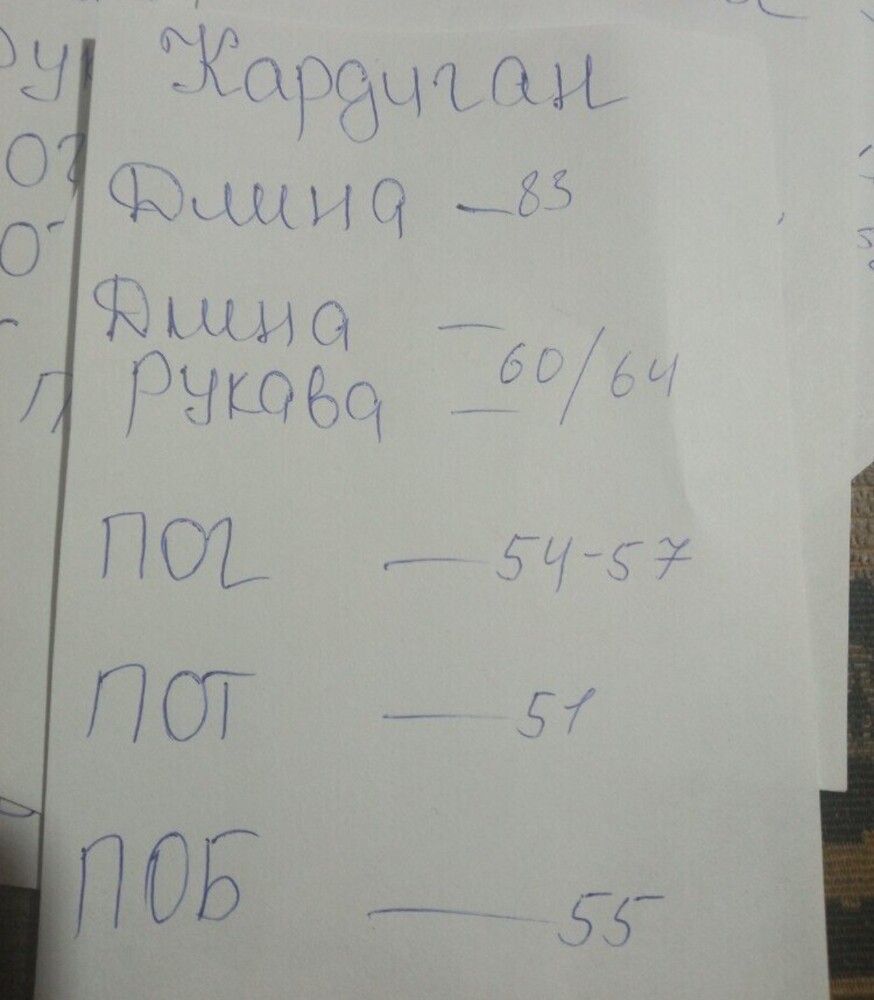 Кардиган
Длина — 83
Длина —
Рукава — 60/64
ПОГ — 54-57
ПОТ — 51
ПОБ — 55